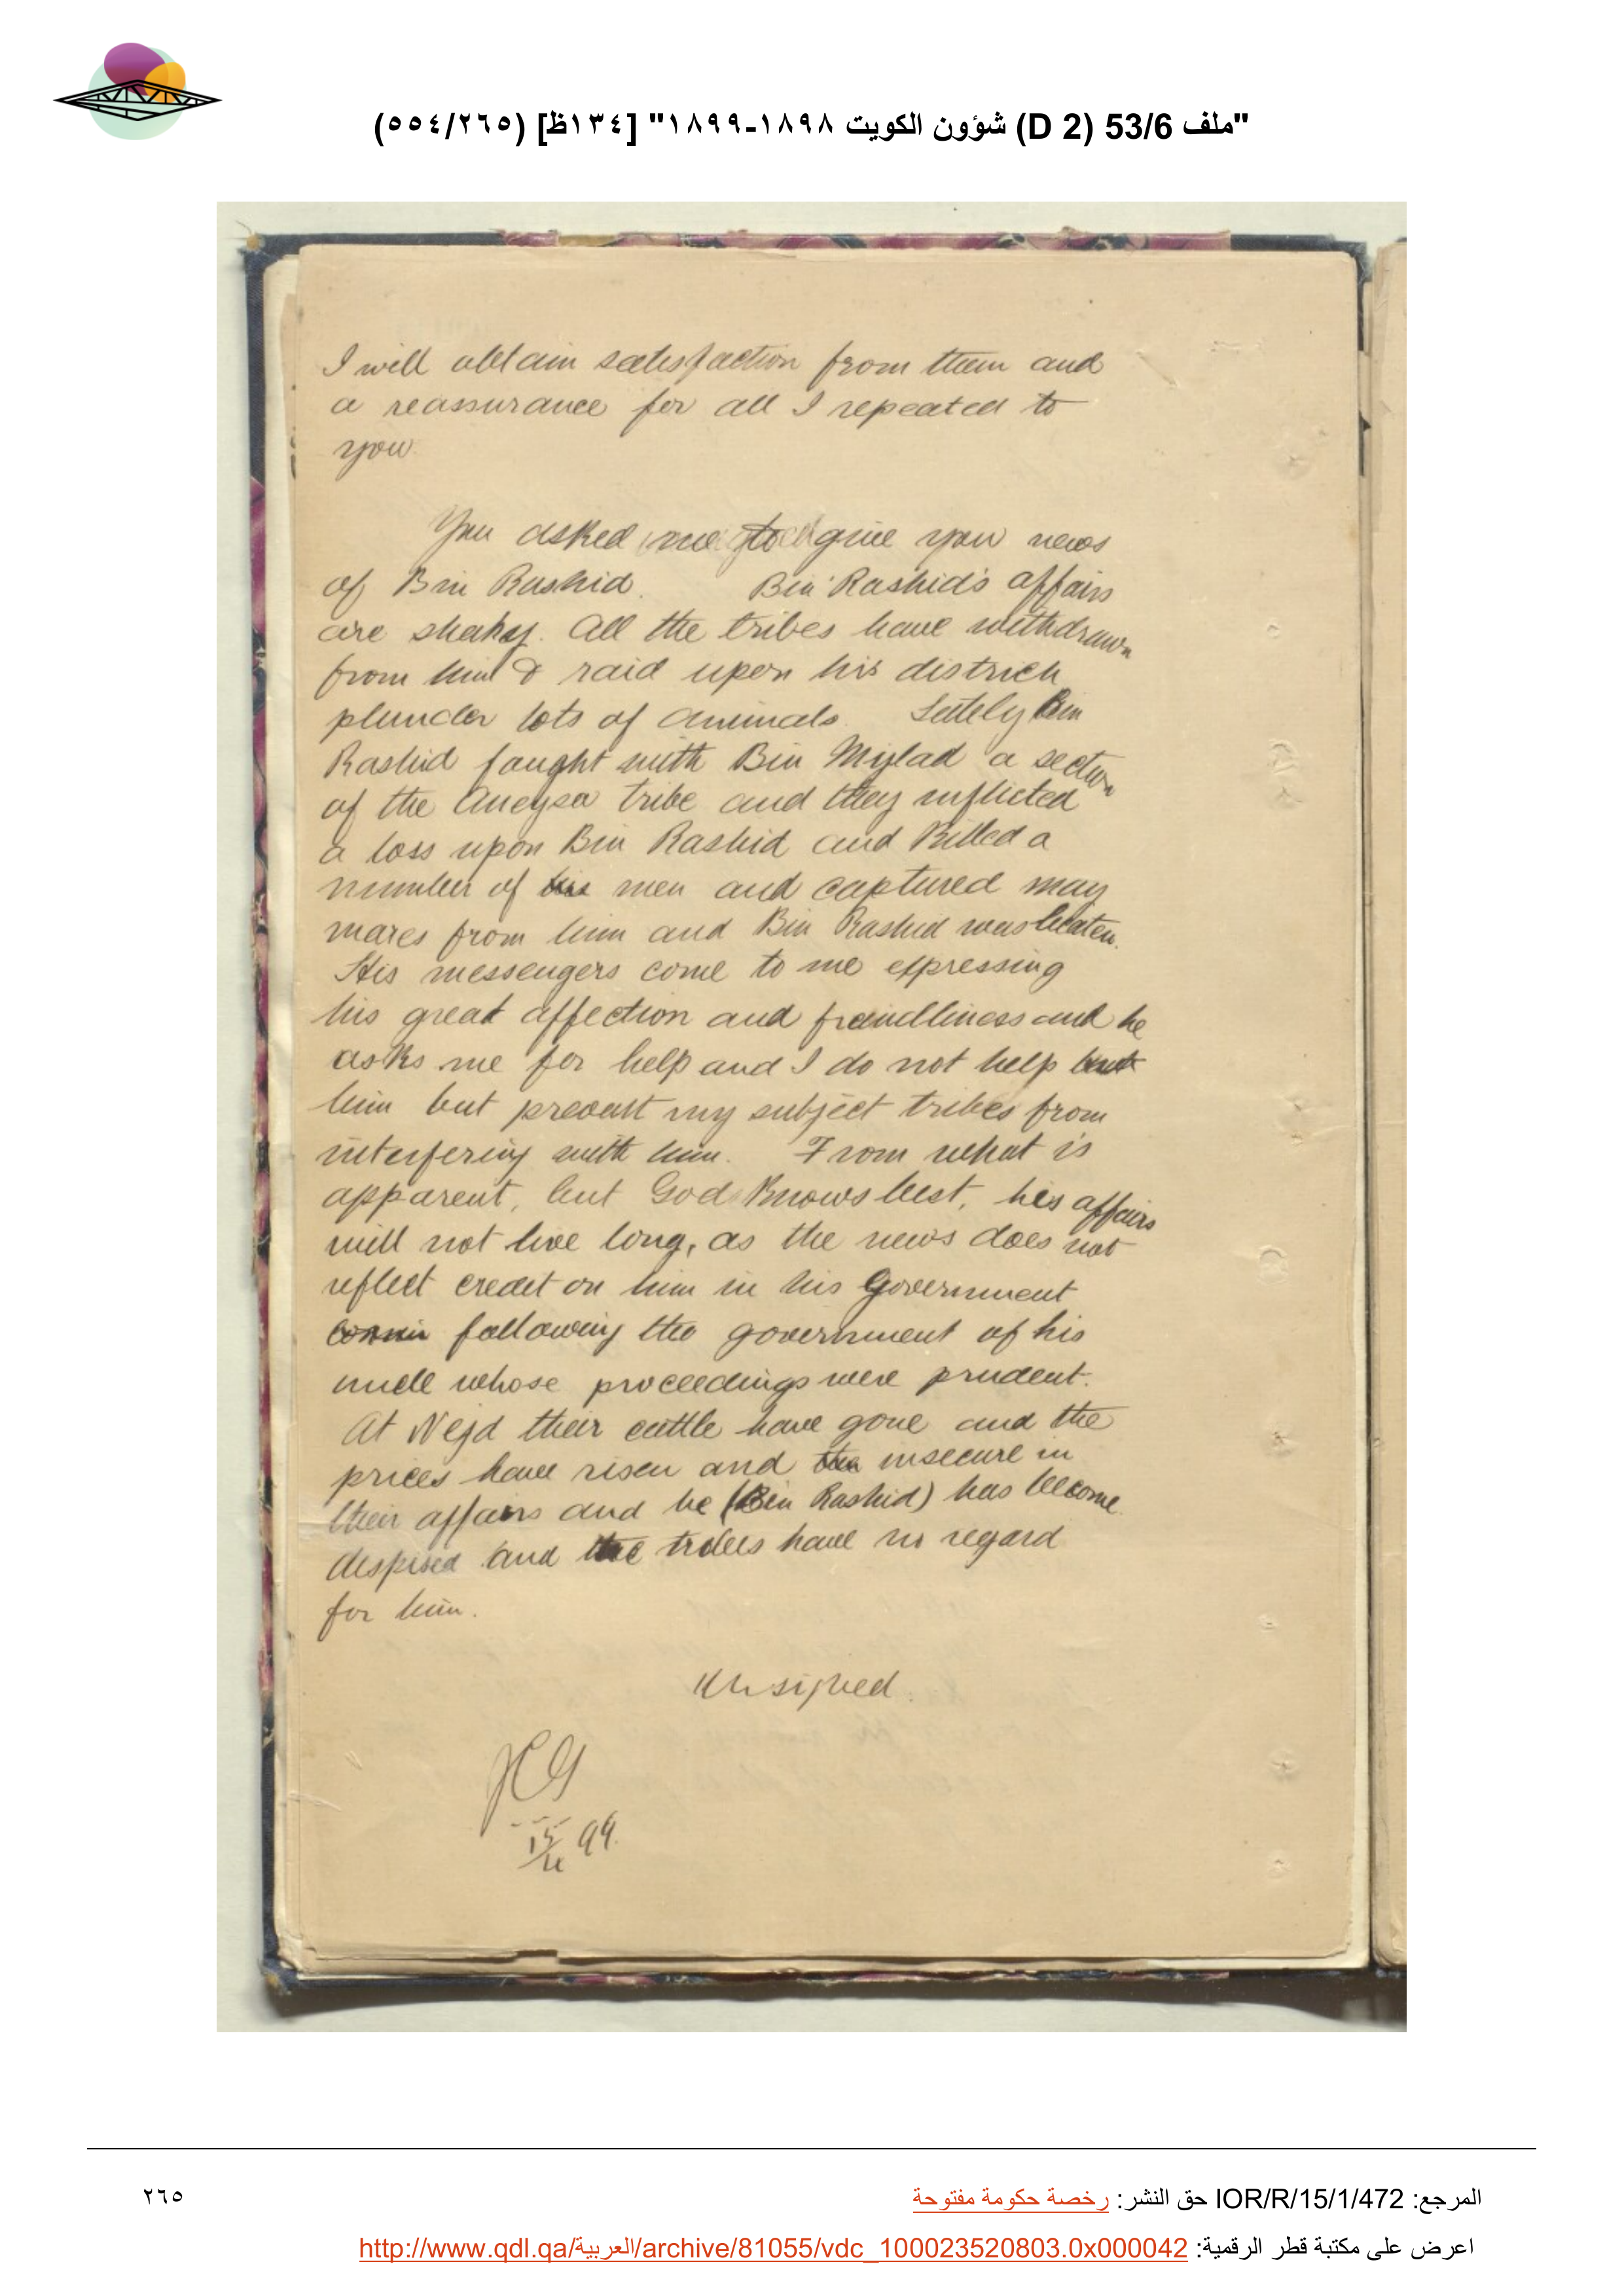 "ملف 53/6 (D 2) شؤون الكويت ١٨٩٨-١٨٩٩" [١٣٤ظ] (٥٥٤/٢٦٥)
I will obtain satisfaction from them and
a reassurance for all I repeated to
you
You asked me to give you news
of Bin Rashid. Bin Rashid's affairs
are shaky. All the tribes have withdrawn
from him & raid upon his district
plunder lots of animals. Lately Bin
Rashid fought with Bin Mylad a section
of the Aneysa tribe and they inflicted
a loss upon Bin Rashid and Killed a
number of his men and captured many
mares from him and Bin Rashid was beaten.
His messengers come to me expressing
his great affection and friendliness and he
asks me for help and I do not help
him but prevent my subject tribes from
interfering with him. From what is
apparent, but God Knows best, his affairs
will not live long, as the news does not
reflect credit on him in his Government
following the government of his
uncle whose proceedings were prudent.
At Nejd their cattle have gone and the
prices have risen and insecure in
their affairs and he (Bin Rashid) has become
despised and the tribes have no regard
for him.
Unsigned.
JCG
15/4 99.
المرجع: IOR/R/15/1/472 حق النشر: رخصة حكومة مفتوحة
٢٦٥
اعرض على مكتبة قطر الرقمية: http://www.qdl.qa/العربية/archive/81055/vdc_100023520803.0x000042